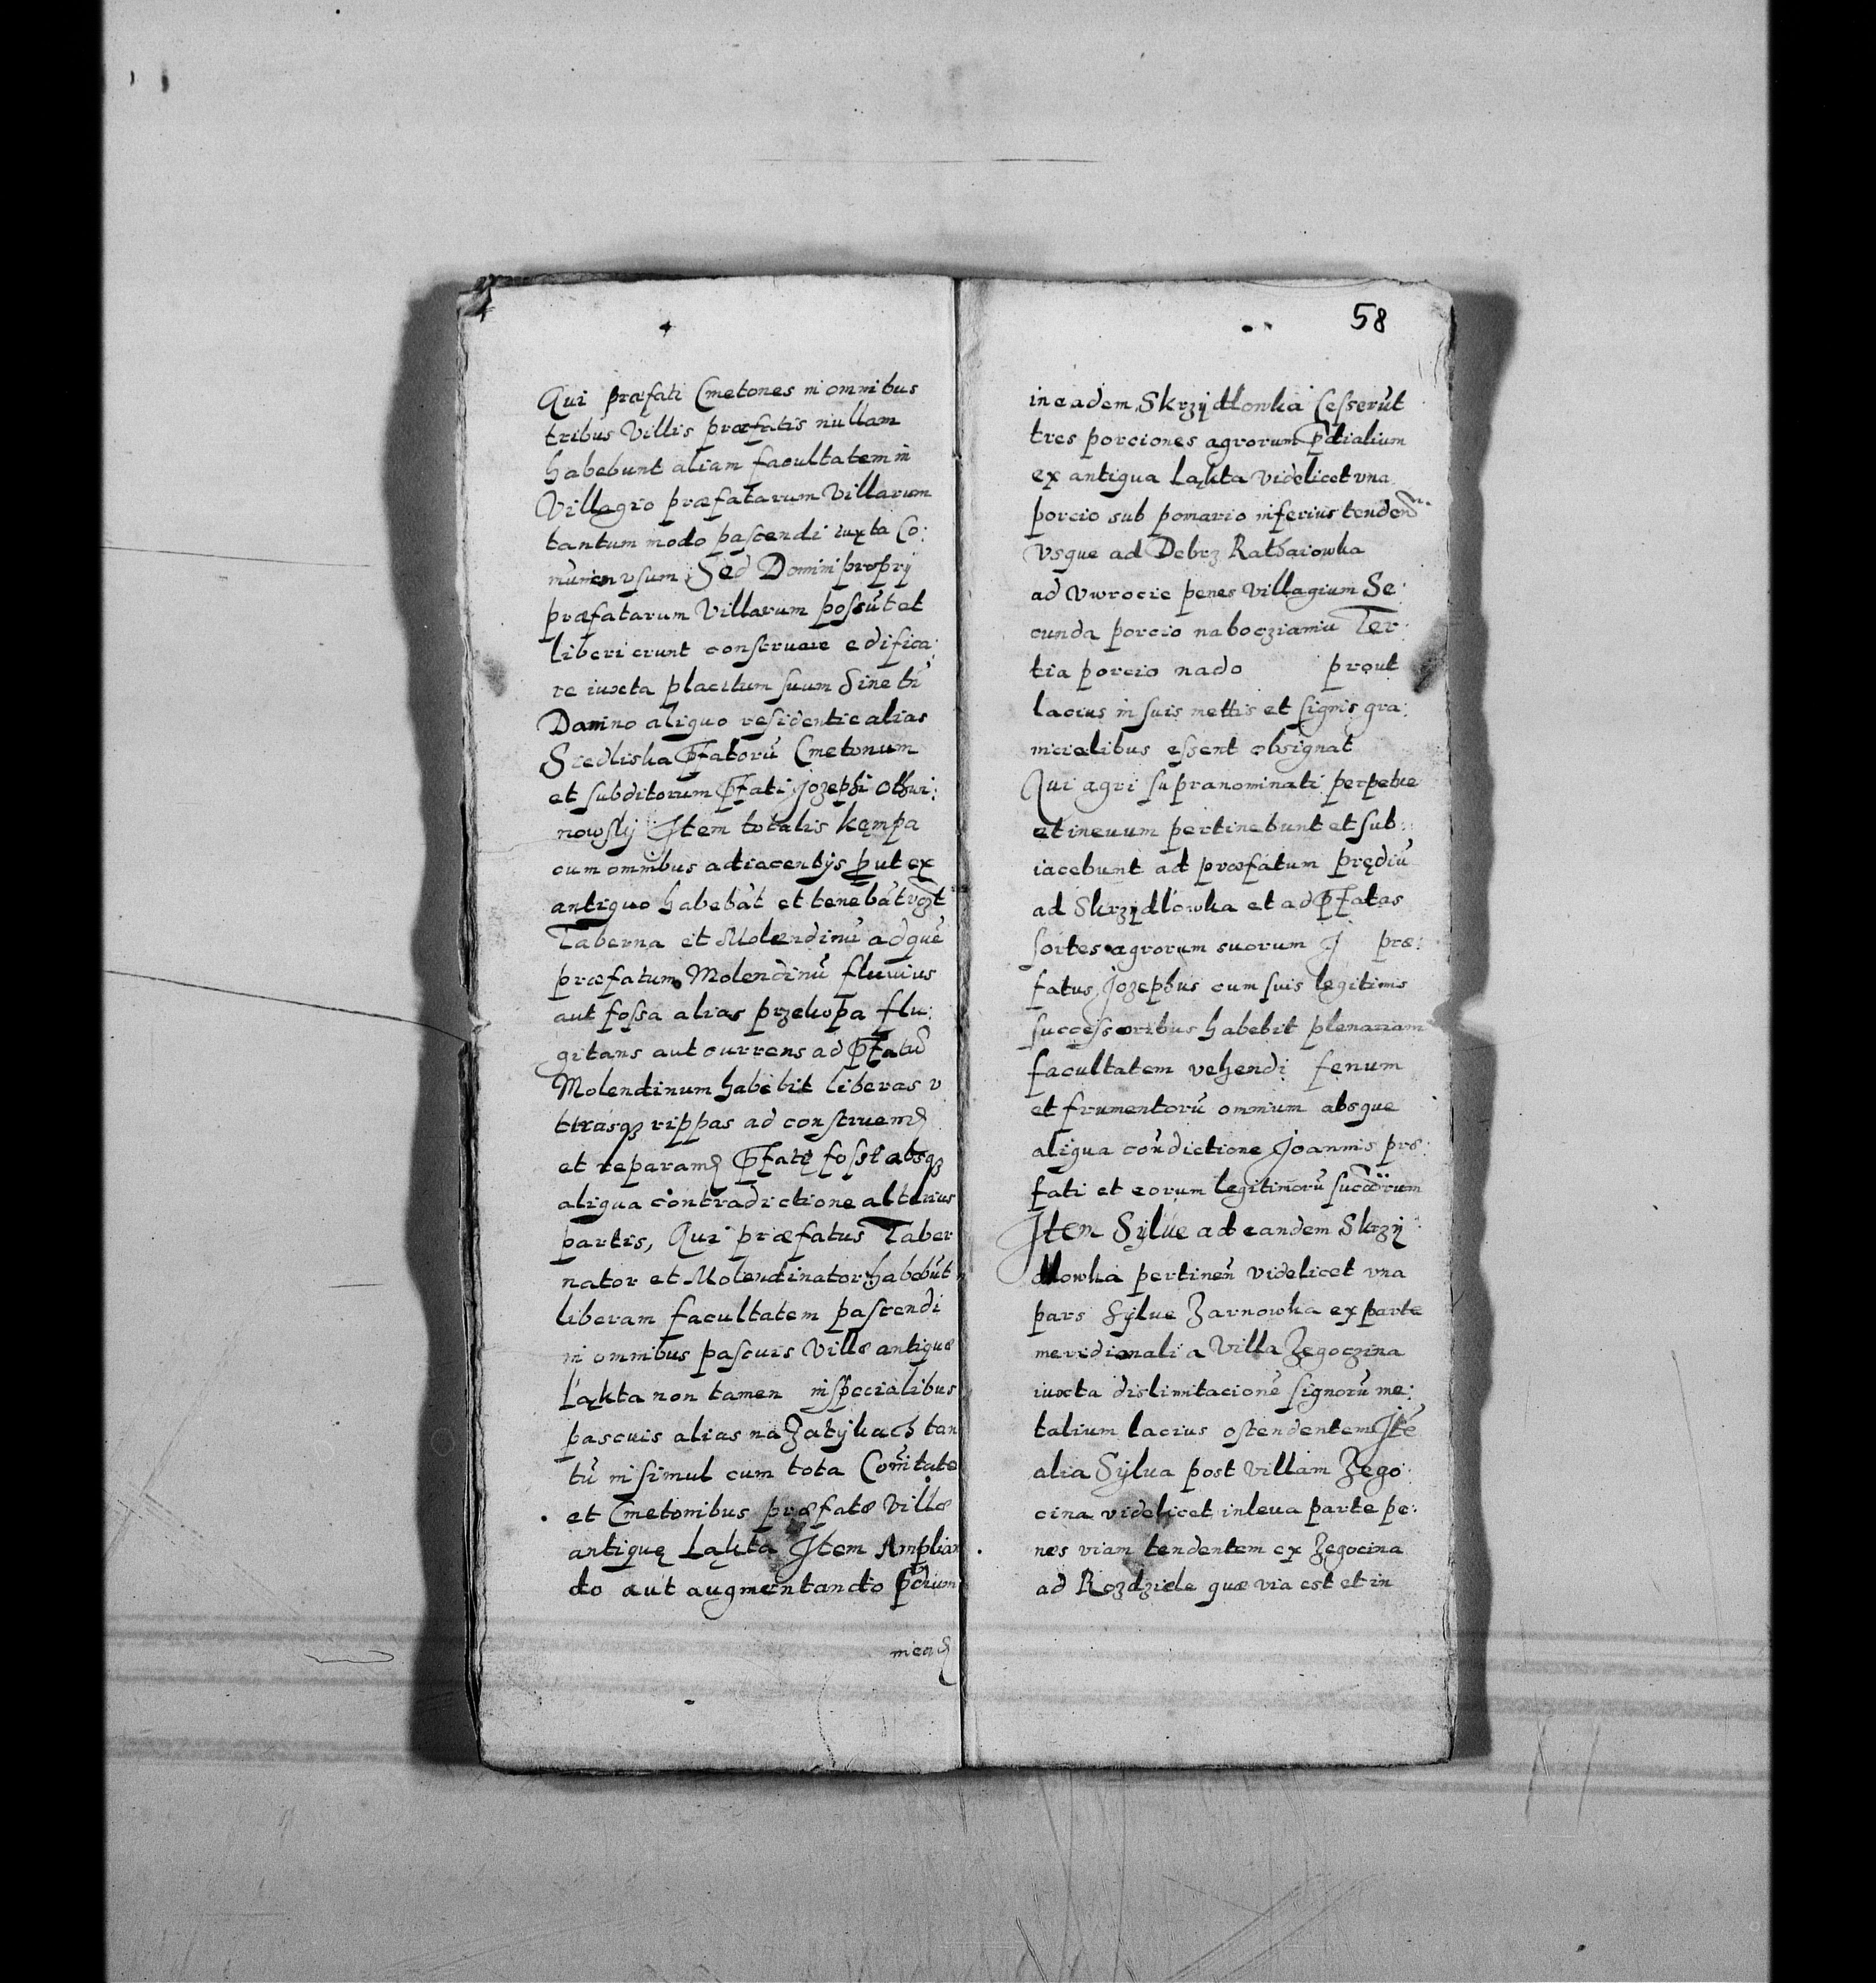 Qui præfati Cmetones in omnibus
tribus Villis præfatis nullam
habebunt aliam facultatem in
Villagio præfatarum Villarum
tantum modo pascendi iuxta Co:
munen vsum Sed Domini proprij
præfatarum Villarum possūt et
liberi erunt construere edifica:
re iuxta placitum suum Sine
Damno aliquo residentie alias
Siedliska Pfatorū Cmetonum
et subditorum Pfati Jozephi Othwi:
nowskj Item totalis kępa
cum omnibus adiacentijs put ex
antiquo habebāt et tenebāt
Taberna et Molendinū ad quē
præfatum Molendinū fluuius
aut fossa alias przekopa flu:
gitans aut currens ad Pfatū
Molendinum habebit liberas v
trasq rippas ad construend
et reparand Pfatę fosse absq
aliqua contradictione alterius
partis, Qui præfatus Taber
nator et Molendinator habebūt
liberam facultatem pascendi
in omnibus pascuis Villæ antiquæ
Łąkta non tamen in specialibus
pascuis alias na Zatÿkach tan
tū in simul cum tota Comītate
et Cmetonibus præfatæ Villæ
antiquę Łąkta Item Amplian
do aut augmentando pdium
58
in eadem Skrzÿdlowka Cesserūt
tres porciones agrorum pdialium
ex antiqua Łąkta videlicet vna
porcio sub pomario inferius tenden
Vsque ad Debrz Rathaiowka
ad Vwrocie penes villagium Se:
cunda porcio na boczianiu Ter:
tia porcio nado prout
lacius in suis mettis et signis gra:
nicialibus essent obsignat
Qui agri supranominati perpetue
et in euum pertinebunt et sub:
iacebunt ad præfatum prędiū
ad Skrzydlowka et ad Pfatas
sortes agrorum suorum J præ:
fatus Jozephus cum suis legitimis
successoribus habebit plenariam
facultatem vehendi fenum
et frumentorū omnium absque
aliqua condictione Joannis præ:
fati et eorum legitimorū succörum
Item Sÿlue ad eandem Skrzÿ
dlowka pertinen videlicet vna
pars Sÿlue Zarnowka ex parte
meridionali a Villa Zegoczina
iuxta dislimitacionē signorū me:
talium lacius ostendentem Itē
alia Sÿlua post villam Zego:
cina videlicet in leua parte pe:
nes viam tendentem ex Zegocina
ad Rozdziele quæ via est et in